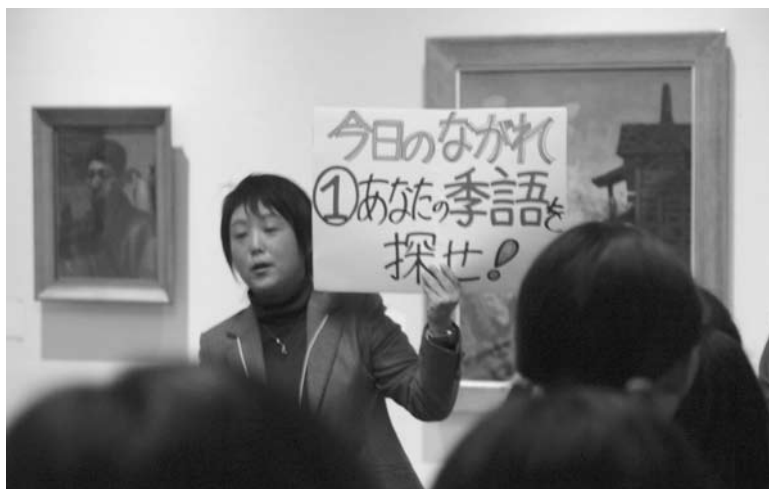 今日のながれ
①あなたの季語を
探せ!